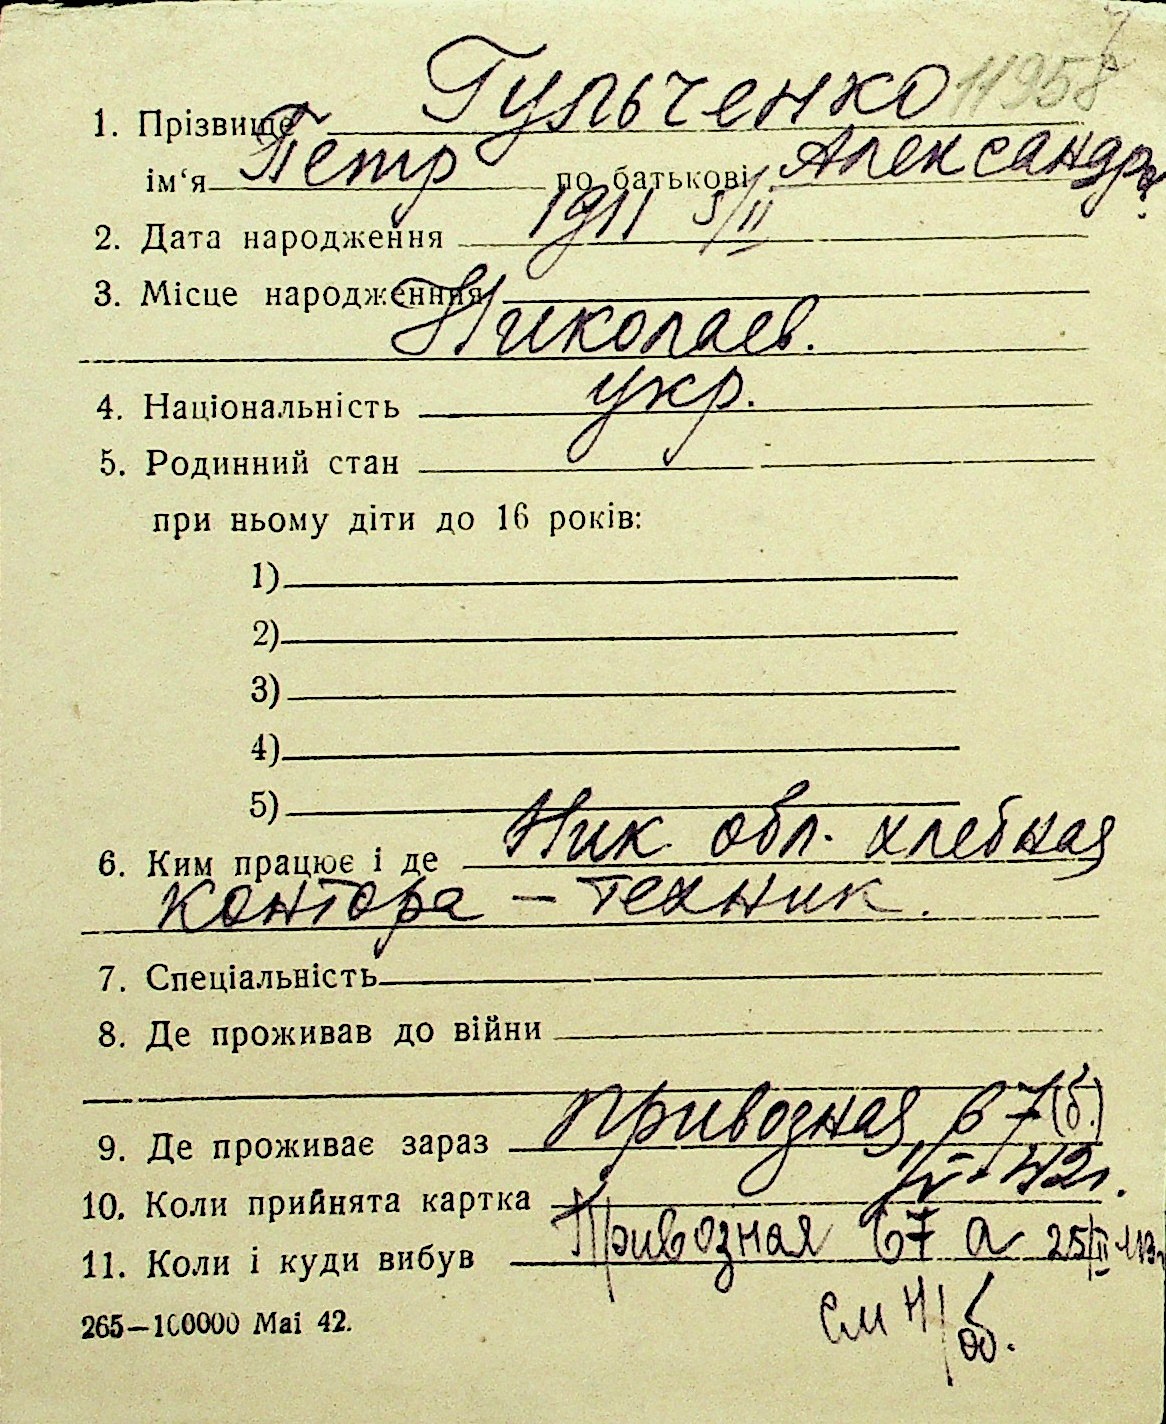 1. Прізвище Гульченко 11958
ім'я Петр по батькові Александр
2. Дата народження 1911 5/II
3. Місце народженння
Николаев.
4. Національність укр.
5. Родинний стан
при ньому діти до 16 років:
1)
2)
3)
4)
5)
6. Ким працює і де Ник обл. хлебная
контора – техник.
7. Спеціальність
8. Де проживав до війни
9. Де проживає зараз Привозная 67 (б.)
10. Коли прийнята картка 42г.
11. Коли і куди вибув Привозная 67 а 25/II 43г
265—100000 Маі 42.
см н/об.